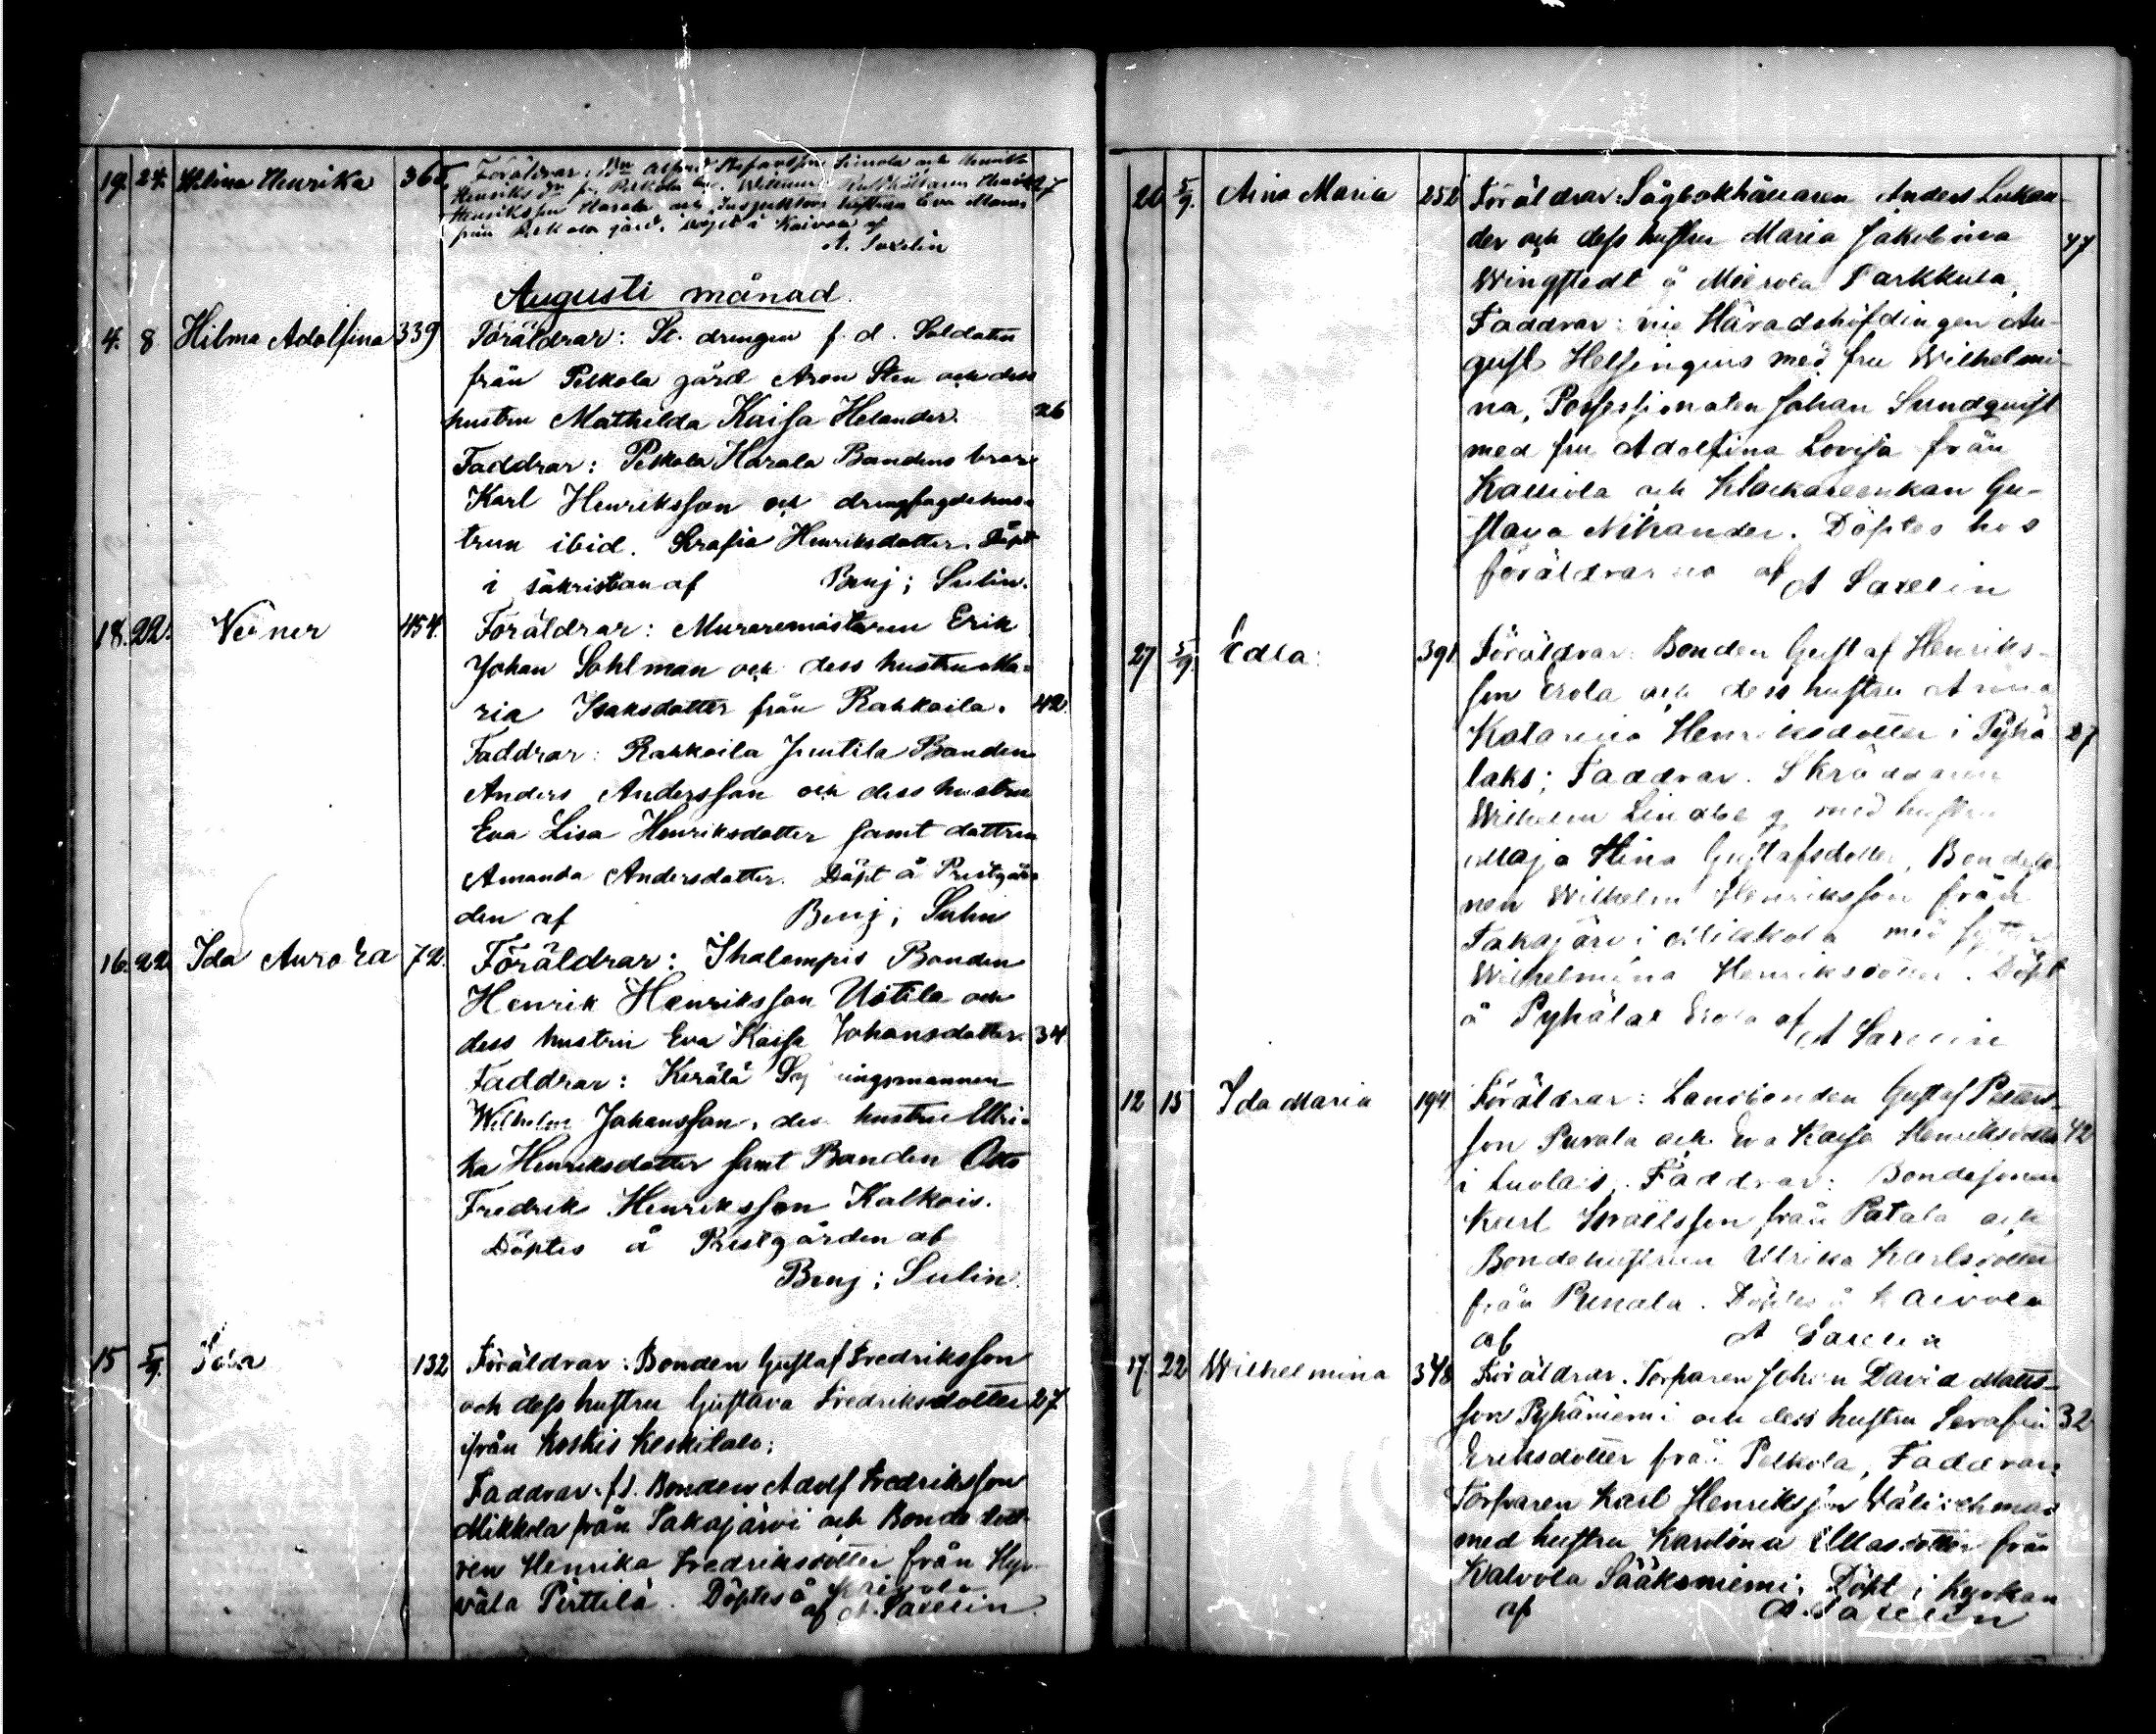 19. 24. Helina Henrika 366 Föräldrar: Bn Alfred Simola och Henrika
Henriks dr fr. Pelkola
Henriksson Harala och Inspektors hustrun Eva
från Pelkola gård, döpt i Kaivola af
27
A. Saxelin
Augusti månad.
4. 8 Hilma Adolfina 339 Föräldrar: St. drengen f. d. Soldaten
från Pelkola gård Aron Sten och dess
hustru Mathilda Kaisa Helander. 26
Faddrar: Pelkola Harala Bondens broder
Karl Henriksson och drengfogdehus-
trun ibid. Serafia Henriksdotter. Döpt
i sakristian af Benj; Sulin.
18. 22. Verner 454. Föräldrar: Muraremästaren Erik
Johan Sohlman och dess hustru Ma-
ria Isaksdotter från Rahkoila. 42.
Faddrar: Rahkoila Juntila Bonden
Anders Andersson och dess hustru
Eva Lisa Henriksdotter samt dottren
Amanda Andersdotter. Döpt å Prestgår-
den af Benj; Sulin
16. 22 Ida Aurora 72. Föräldrar: Ihalempis Bonden
Henrik Henriksson Uotila och
dess hustru Eva Kaisa Johansdotter. 34
Faddrar: Kerälä
Wilhelm Johansson, des hustru Ulri-
ka Henriksdotter samt Bonden Otto
Fredrik Henriksson Kalkois.
Döptes å Prestgården af
Benj; Sulin.
15 5/9. 132 Föräldrar: Bonden Gustaf Fredriksson
och dess hustru Gustava Fredriksdotter 27
ifrån Koskis Keskitalo;
Faddrar: f.d. Bonden Adolf Fredriksson
Mikkola från Takajärvi och Bonde dott-
ren Henrika Fredriksdotter från Hyr-
välä Perttilä. Döptes å Kaivola
af A. Saxelin.
20 5/9. Aina Maria 252 Föräldrar: Sågbokhållaren Anders Lukan-
der och dess hustru Maria Jakobina 47
Wingstedt å Mierola Parkkula,
Faddrar: vice Häradshöfdingen Au-
gust Helsingius med fru Wilhelmi-
na, Possessionaten Johan Sundquist
med fru Adolfina Lovisa från
och Klockareenkan Gu-
stava Nikander. Döptes hos
föräldrarna af A Saxelin
27 5/9. Edla 391 Föräldrar: Bonden Gustaf Henriks-
son Erola och dess hustru Anna
Katarina Henriksdotter i Pyhä- 27
laks; Faddrar: Skräddaren
Wilhelm Lindberg med hustru
Maja Stina Gustafsdotter, Bondeso-
nen Wilhelm Henriksson från
Takajärvi med syster
Wilhelmina Henriksdotter. Döpt
å Pyhälax Erola af A Saxelin
12 15 Ida Maria 194 Föräldrar: Landbonden Gustaf
son Puvala och Eva Kaisa Henriksdotter 42
i Luolais. Faddrar: Bondesonen
Karl från Patala och
Bondehustrun Ulrika Karlsdotter
från. Döptes å Kaivola
af A Saxelin
17 22 Wilhelmina 348 Föräldrar: Torparen Johan David Matts-
son Pyhäniemi och dess hustru Serafia 32
Eriksdotter från Pelkola, Faddrar:
Torparen Karl Henriksson
med hustru Karolina från
Kalvola Sääksniemi. Döpt i Kyrkan
af A. Saxelin